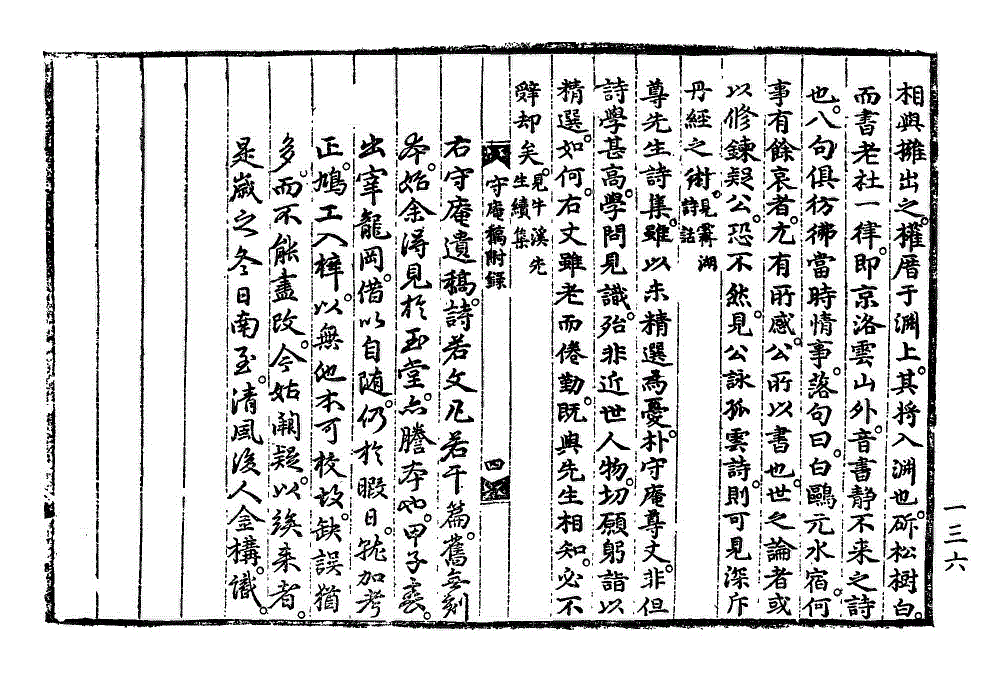 相與擁出之。權厝于淵上。其將入淵也。斫松樹白。
而書老杜一律。卽京洛雲山外。音書靜不來之詩
也。八句俱彷彿當時情事。落句曰。白鷗元水宿。何
事有餘哀者。尤有所感。公所以書也。世之論者或
以修鍊疑公。恐不然。見公詠孤雲詩。則可見深斥
丹經之術。見霽湖詩話
尊先生詩集。雖以未精選爲憂。朴守庵尊丈。非但
詩學甚高。學問見識。殆非近世人物。切願躬詣以
精選。如何。右丈雖老而倦勤。旣與先生相知。必不
辭却矣。見牛溪先生續集
守庵稿附錄 四
右守庵遺稿。詩若文凡若干篇。舊無刻
本。始余得見於玉堂。亦謄本也。甲子春。
出宰龍岡。借以自随。仍於暇日。䟽加考
正。鳩工入梓。以無他本可校。故缺誤猶
多。而不能盡改。今姑闕疑。以俟来者。
是歲之冬日南至。淸風後人金構識。
一三六